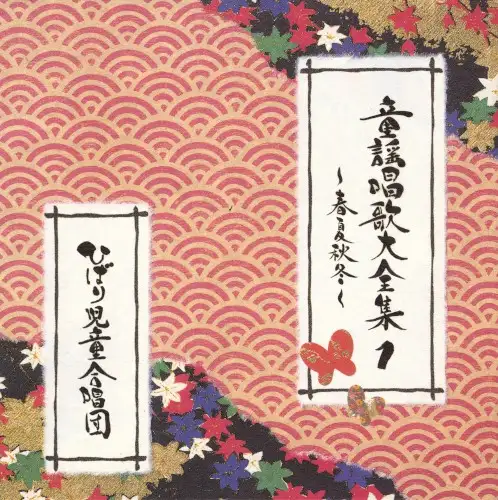 童謡唱歌大全集1
~春夏秋冬~
ひばり児童合唱団